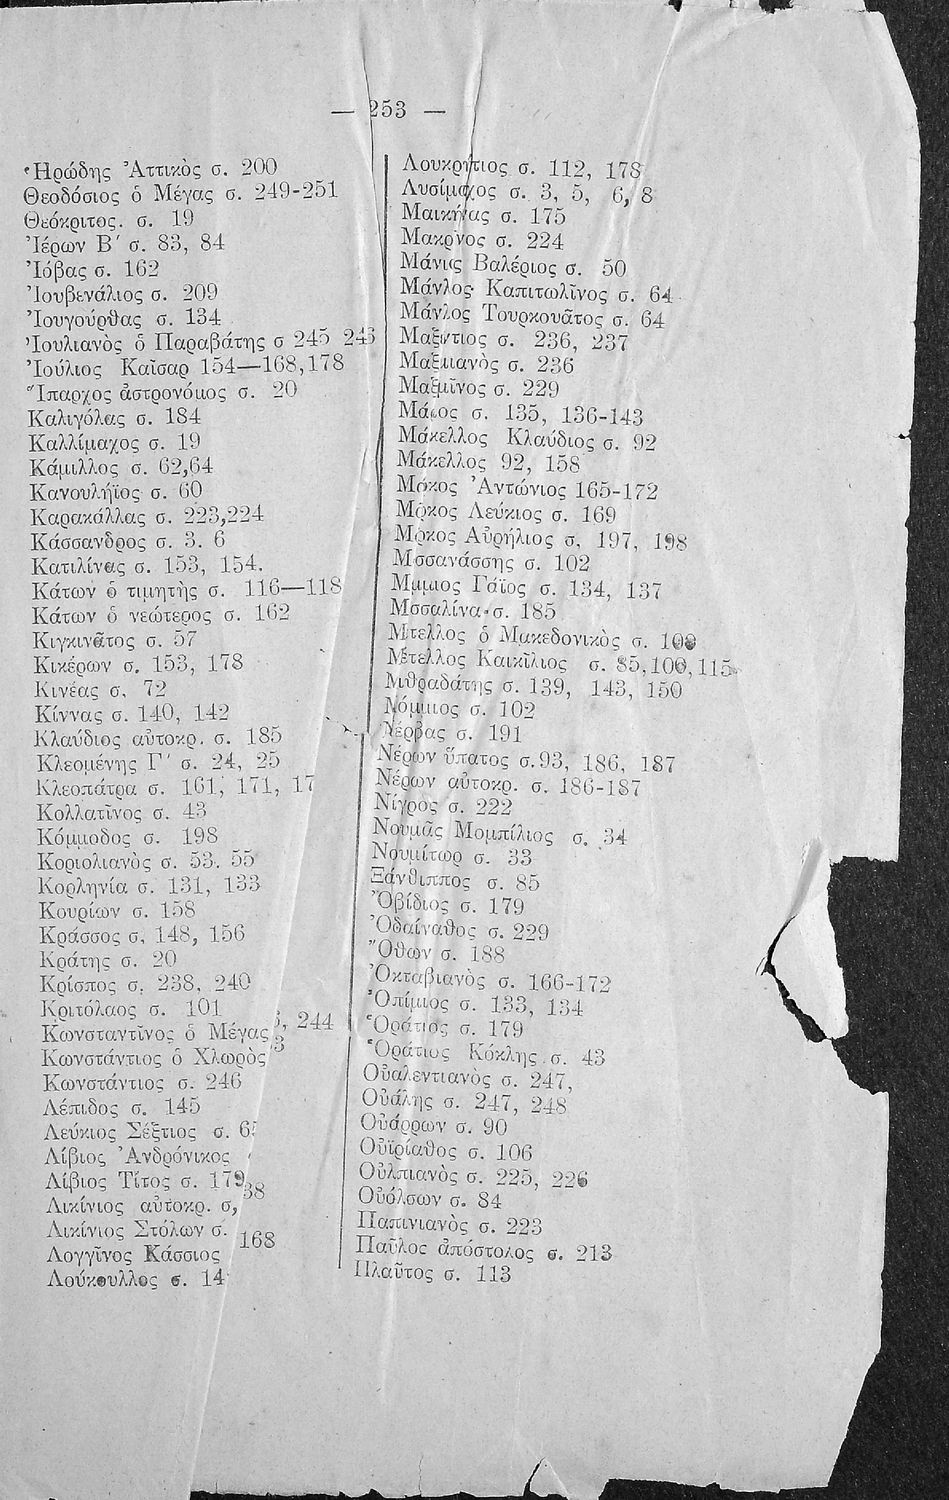 — 253 —
Ἡρώδης Ἀττικὸς σ. 200
Θεοδόσιος ὁ Μέγας σ. 249-251
Θεόκριτος. σ. 19
Ἱέρων Β΄ σ. 83, 84
Ἰόβας σ. 162
Ἰουβενάλιος σ. 209
Ἰουγούρθας σ. 134
Ἰουλιανὸς ὁ Παραβάτης σ 245 246
Ἰούλιος Καῖσαρ 154—168,178
Ἵπαρχος ἀστρονόμος σ. 20
Καλιγόλας σ. 184
Καλλίμαχος σ. 19
Κάμιλλος σ. 62,64
Κανουλήϊος σ. 60
Καρακάλλας σ. 223,224
Κάσσανδρος σ. 3. 6
Κατιλίνας σ. 153, 154.
Κάτων ὁ τιμητὴς σ. 116—118
Κάτων ὁ νεώτερος σ. 162
Κιγκινᾶτος σ. 57
Κικέρων σ. 153, 178
Κινέας σ. 72
Κίννας σ. 140, 142
Κλαύδιος αὐτοκρ. σ. 185
Κλεομένης Γ΄ σ. 24, 25
Κλεοπάτρα σ. 161, 171, 17
Κολλατῖνος σ. 43
Κόμμοδος σ. 198
Κοριολιανὸς σ. 53. 55
Κορληνία σ. 131, 133
Κουρίων σ. 158
Κράσσος σ. 148, 156
Κράτης σ. 20
Κρίσπος σ. 238, 240
Κριτόλαος σ. 101
Κωνσταντῖνος ὁ Μέγας , 244
Κωνστάντιος ὁ Χλωρὸς 3
Κωνστάντιος σ. 246
Λέπιδος σ. 145
Λεύκιος Σέξτιος σ. 6
Λίβιος Ἀνδρόνικος
Λίβιος Τίτος σ. 179
Λικίνιος αὐτοκρ. σ, 38
Λικίνιος Στόλων σ.
Λογγῖνος Κάσσιος 168
Λούκουλλος σ. 14
Λουκρήτιος σ. 112, 178
Λυσίμαχος σ. 3, 5, 6, 8
Μαικήνας σ. 175
Μακρῖνος σ. 224
Μάνις Βαλέριος σ. 50
Μάνλος Καπιτωλῖνος σ. 64
Μάνλος Τουρκουᾶτος σ. 64
Μαξντιος σ. 236, 237
Μαξμιανὸς σ. 236
Μαξμῖνος σ. 229
Μάιος σ. 135, 136-143
Μάκελλος Κλαύδιος σ. 92
Μάκελλος 92, 158
Μᾶκος Ἀντώνιος 165-172
Μρκος Λεύκιος σ. 169
Μρκος Αὐρήλιος σ. 197, 198
Μσσανάσσης σ. 102
Μμμιος Γάϊος σ. 134, 137
Μσσαλίνα σ. 185
Μτελλος ὁ Μακεδονικὸς σ. 100
Μέτελλος Καικῖλιος σ. 85,100,115
Μιθραδάτης σ. 139, 143, 150
Νόμμιος σ. 102
Νέρβας σ. 191
Νέρων ὕπατος σ.93, 186, 187
Νέρων αὐτοκρ. σ. 186-187
Νίγρος σ. 222
Νουμᾶς Μομπίλιος σ. 34
Νουμίτωρ σ. 33
Ξάνθιππος σ. 85
Ὀβίδιος σ. 179
Ὀδαίναθος σ. 229
Ὄθων σ. 188
Ὀκταβιανὸς σ. 166-172
Ὀπίμιος σ. 133, 134
Ὁράτιος σ. 179
Ὁράτιος Κόκλης σ. 43
Οὐαλεντιανὸς σ. 247,
Οὐάλης σ. 247, 248
Οὐάρρων σ. 90
Οὐϊρίαθος σ. 106
Οὐλπιανὸς σ. 225, 226
Οὐόλσων σ. 84
Παπινιανὸς σ. 223
Παῦλος ἀπόστολος σ. 213
Πλαῦτος σ. 113